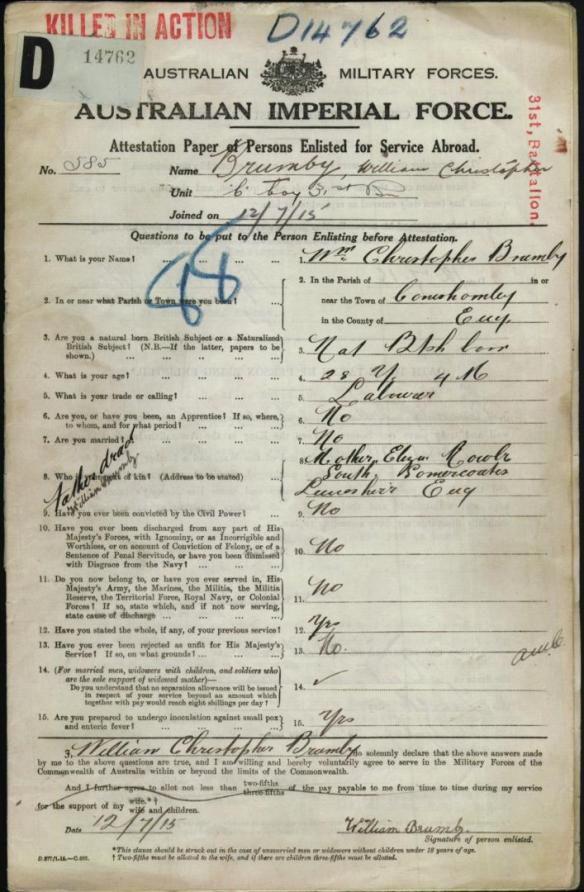 KILLED IN ACTION
D14762
D
14762
AUSTRALIAN MILITARY FORCES.
AUSTRALIAN IMPERIAL FORCE.
31st, Battalion.
Attestation Paper of Persons Enlisted for Service Abroad.
No. 585 Name Brumby, William Christopher
Unit "C" Coy 31st Bn
Joined on 12/7/15
Questions to be put to the Person Enlisting before Attestation.
1. What is your Name? ... ... ... 1. Wm Christopher Brumby
2. In or near what Parish or Town were you born? ... 2. In the Parish of in or
near the Town of
in the County of Eng
88
3. Are you a natural born British Subject or a Naturalized British Subject? (N.B.—If the latter, papers to be shown.) ... ... ... 3. Nat Btsh born
4. What is your age? ... ... ... 4. 28 Y 4 M
5. What is your trade or calling? ... ... 5. Labourer
6. Are you, or have you been, an Apprentice? If so, where, to whom, and for what period? ... ... 6. No
7. Are you married? ... ... ... 7. No
8. Who is your next of kin? (Address to be stated) 8. Mother, Eliza
South
Eng
Father dead
William Brumby
9. Have you ever been convicted by the Civil Power? ... 9. No
10. Have you ever been discharged from any part of His Majesty's Forces, with Ignominy, or as Incorrigible and Worthless, or on account of Conviction of Felony, or of a Sentence of Penal Servitude, or have you been dismissed with Disgrace from the Navy? ... ... 10. No
11. Do you now belong to, or have you ever served in, His Majesty's Army, the Marines, the Militia, the Militia Reserve, the Territorial Force, Royal Navy, or Colonial Forces? If so, state which, and if not now serving, state cause of discharge ... ... 11. No
12. Have you stated the whole, if any, of your previous service? 12. Yes
13. Have you ever been rejected as unfit for His Majesty's Service? If so, on what grounds? ... ... 13. No.
14. (For married men, widowers with children, and soldiers who are the sole support of widowed mother)—
Do you understand that no separation allowance will be issued in respect of your service beyond an amount which together with pay would reach eight shillings per day? 14. ✓
15. Are you prepared to undergo inoculation against small pox and enteric fever? ... ... ... 15. Yes
I, William Christopher Brumby do solemnly declare that the above answers made
by me to the above questions are true, and I am willing and hereby voluntarily agree to serve in the Military Forces of the
Commonwealth of Australia within or beyond the limits of the Commonwealth.
And I further agree to allot not less than two-fifths three-fifths of the pay payable to me from time to time during my service
for the support of my wife.*† wife and children.
Date 12/7/15 William Brumby.
Signature of person enlisted.
*This clause should be struck out in the case of unmarried men or widowers without children under 18 years of age.
† Two-fifths must be allotted to the wife, and if there are children three-fifths must be allotted.